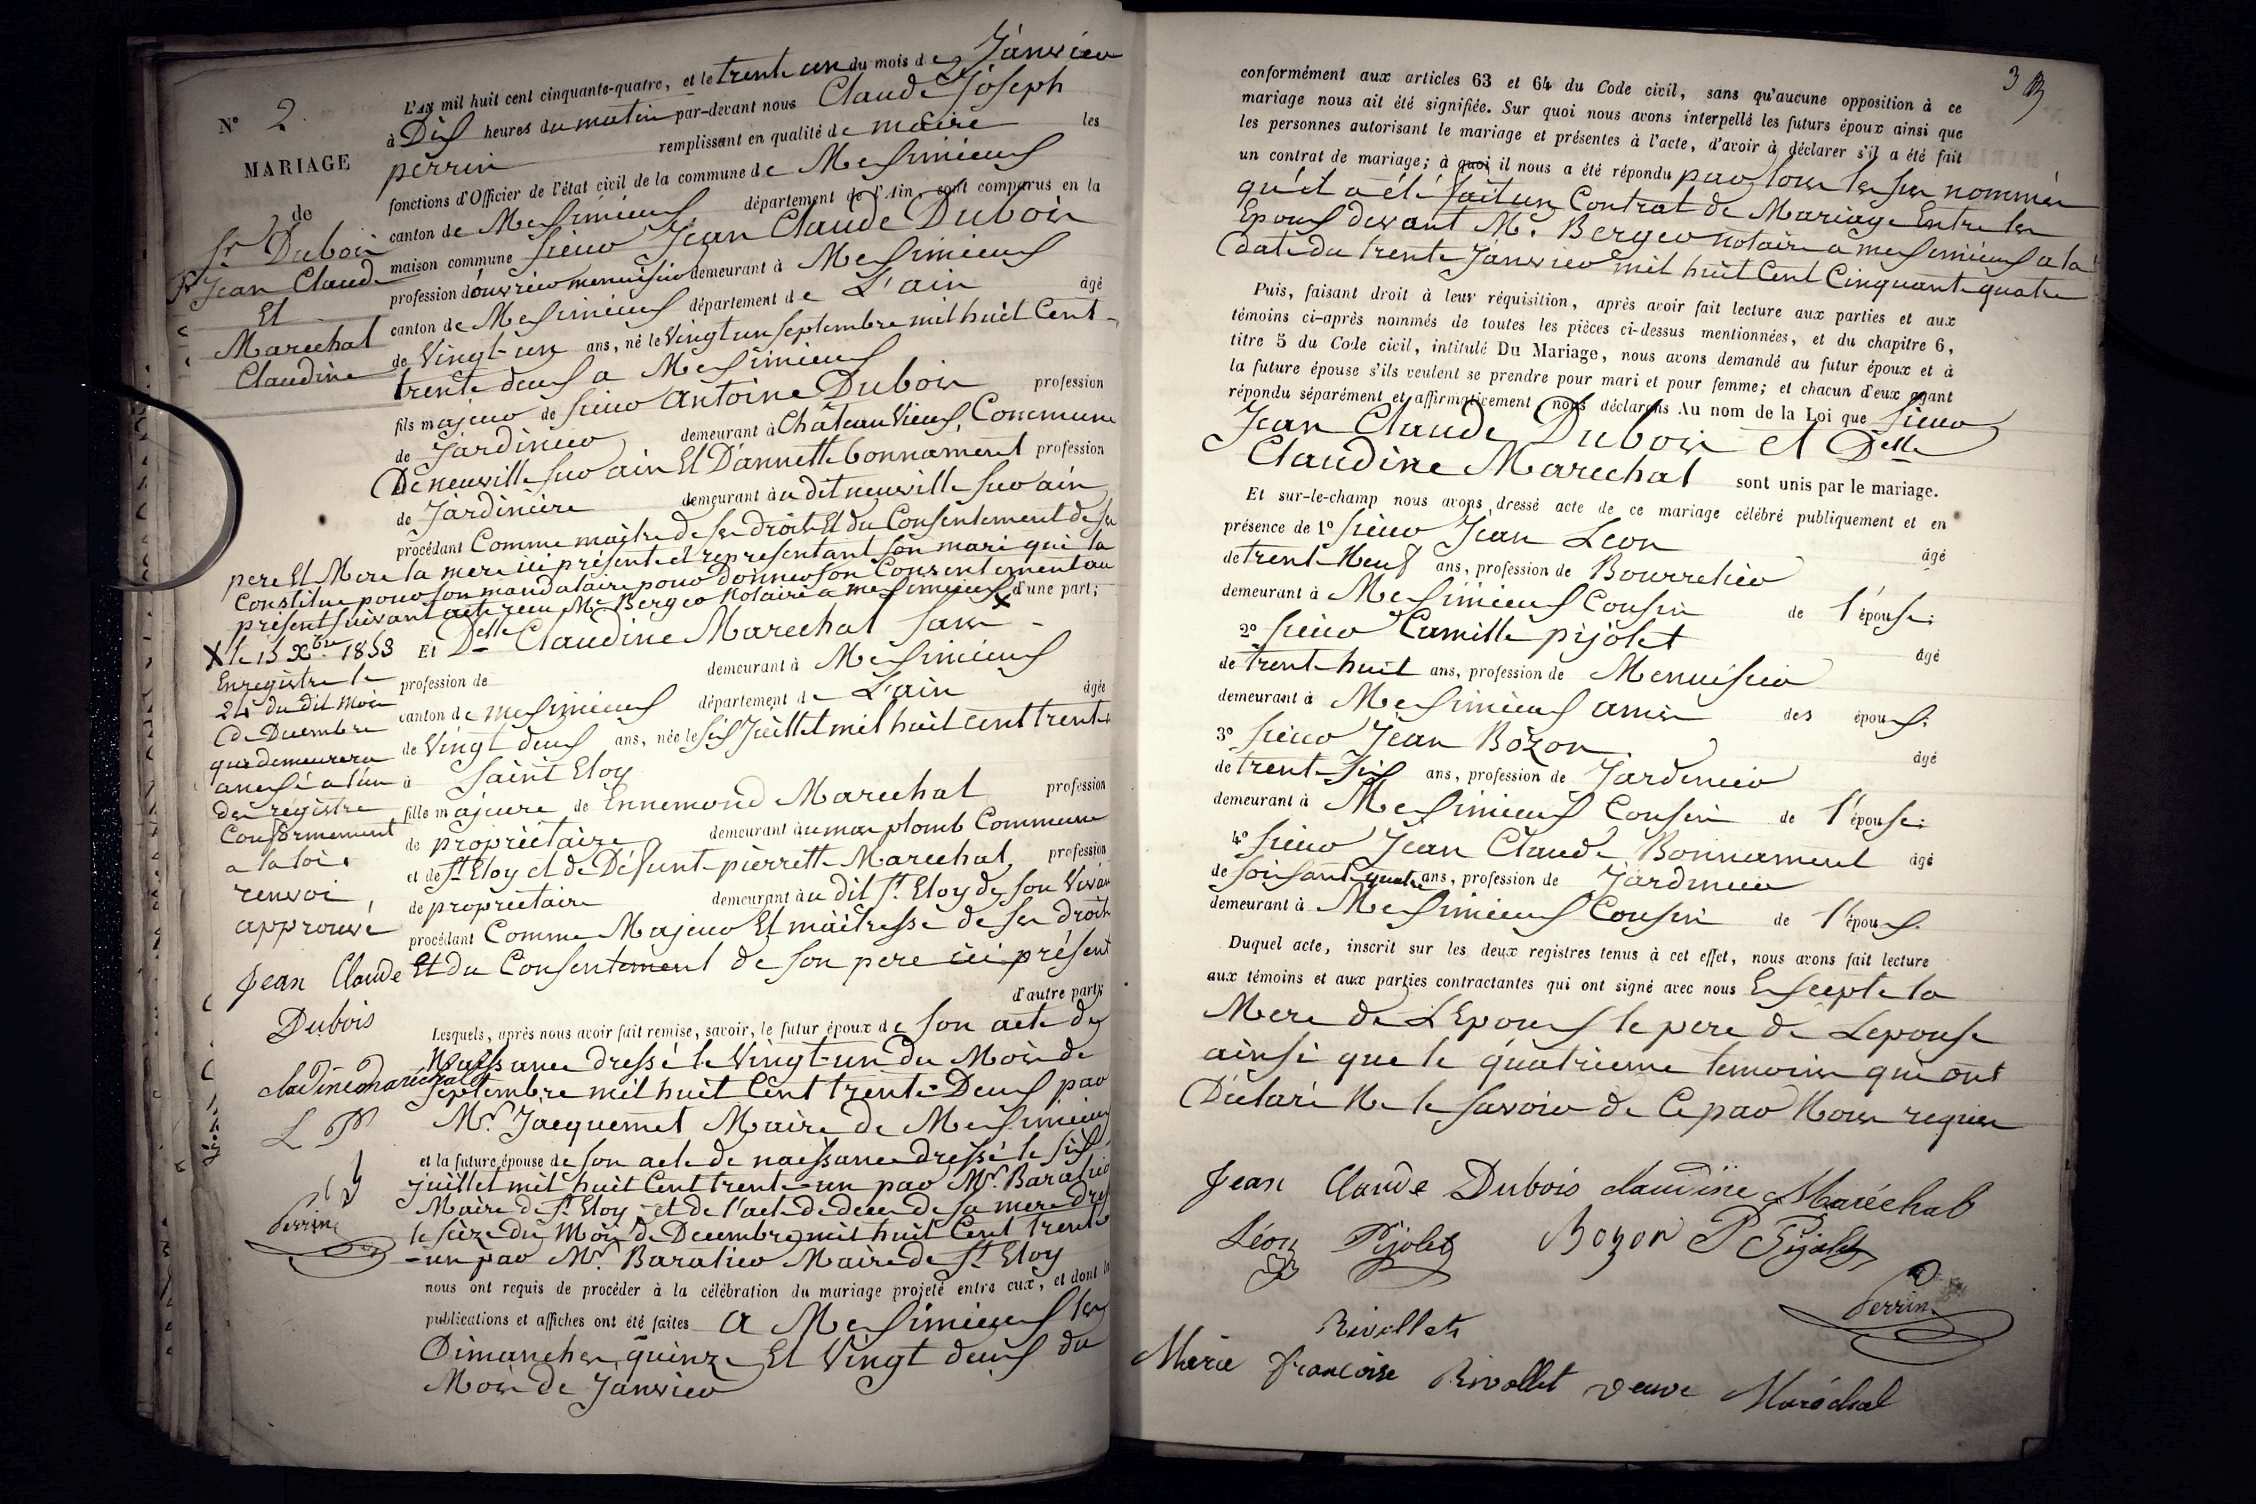 L'An mil huit cent cinquante-quatre, et le trente un du mois de Janvier
à Dix heures du matin par-devant nous Claude Joseph
perrin remplissant en qualité de maire les
fonctions d'Officier de l'état civil de la commune de Meximieux
canton de Meximieux département de l'Ain, sont comparus en la
maison commune Sieur Jean Claude Dubois
profession d'ouvrier menuisier demeurant à Meximieux
canton de Meximieux département de L'ain âgé
de Vingt-un ans, né le Vingt un Septembre mil huit Cent
trente deux a Meximieux
fils majeur de Sieur Antoine Dubois profession
de Jardinier demeurant à Château Vieux, Commune
De neuville sur ain Et D'annette bonnament profession
de Jardinière demeurant à u dit neuville sur ain
procédant Comme maître de ses droits Et du Consentement de ses
pere Et Mere la mere ici présente et representant son mari qui la
Constitue pour son mandataire pour Donner son Consentement au
présent suivant acte reçu Me Berger Notaire a meximieux X d'une part;
Et Delle Claudine Marechal sans
profession de demeurant à Meximieux
canton de meximieux département de L'ain âgée
de Vingt deux ans, née le six Juillet mil huit cent trente
à Saint Eloy
fille majeure de Ennemond Marechal profession
de propriétaire demeurant à u mas plomb Commune
et de St Eloy et de Défunt pierrette Marechal profession
de propriétaire demeurant à u dit St Eloy de son Vivant
procédant Comme Majeur Et maitresse de ses droits
Et du Consentement de son pere ici présent
d'autre part;
Lesquels, après nous avoir fait remise, savoir, le futur époux de son acte de
Naissance dressé le Vingt-un du Mois de
Septembre mil huit Cent trente-Deux par
Mr. Jacquemet Maire de Meximieux
et la future épouse de son acte de naissance dressé le six
juillet mil huit Cent trente-un par Mr. Baratier
Maire de St Eloy et de l'acte de deces de sa mere
le seize du Mois de Decembre mil huit Cent trente
-un par Mr. Baratier Maire de St Eloy
nous ont requis de procéder à la célébration du mariage projeté entre eux, et dont les
publications et affiches ont été faites a Meximieux les
Dimanches quinze Et Vingt deux du
Mois de Janvier
No 2
MARIAGE
de
Sr Dubois
Jean Claude
Et
Marechal
Claudine
X le 15 Xbre 1853
Enregistré le
24 du dit Mois
de Decembre
qui demeurera
annexé a l'un
des registre
Conformement
a la loi.
renvoi
approuvé
Jean Claude
Dubois
claudine maréchal
L P
Perrin
3
conformément aux articles 63 et 64 du Code civil, sans qu'aucune opposition à ce
mariage nous ait été signifiée. Sur quoi nous avons interpellé les futurs époux ainsi que
les personnes autorisant le mariage et présentes à l'acte, d'avoir à déclarer s'il a été fait
un contrat de mariage; à quoi il nous a été répondu par tous les sus nommés
qu'il a été fait un Contrat de Mariage Entre les
Epoux devant Me. Berger notaire a meximieux a la
date du trente Janvier mil huit Cent Cinquante quatre
Puis, faisant droit à leur réquisition, après avoir fait lecture aux parties et aux
témoins ci-après nommés de toutes les pièces ci-dessus mentionnées, et du chapitre 6,
titre 5 du Code civil, intitulé Du Mariage, nous avons demandé au futur époux et à
la future épouse s'ils veulent se prendre pour mari et pour femme; et chacun d'eux ayant
répondu séparément et affirmativement nous déclarons Au nom de la Loi que Sieur
Jean Claude Dubois et Delle
Claudine Marechal sont unis par le mariage.
Et sur-le-champ nous avons dressé acte de ce mariage célébré publiquement et en
présence de 1o Sieur Jean Leon âgé
de trent-Neuf ans, profession de Bourrelier
demeurant à Meximieux Cousin de l'épouse;
2o Sieur Camille pijolet âgé
de trent-huit ans, profession de Menuisier
demeurant à Meximieux amis des époux;
3o Sieur Jean Bozon âgé
de trent-Six ans, profession de Jardinier
demeurant à Meximieux Cousin de l'épouse;
4o Sieur Jean Claude Bonnament âgé
de soixante quatre ans, profession de Jardinier
demeurant à Meximieux Cousin de l'époux.
Duquel acte, inscrit sur les deux registres tenus à cet effet, nous avons fait lecture
aux témoins et aux parties contractantes qui ont signé avec nous Excepte la
Mere de L'Epoux le pere de Lepouse
ainsi que le quatrieme temoins qui ont
Déclaré Ne le savoir de Ce par Nous requis
Jean Claude Dubois claudine Maréchal
Léon Pijolet Bozon P Pijolet
Perrin
Rivollet
Marie françoise Rivollet veuve Maréchal